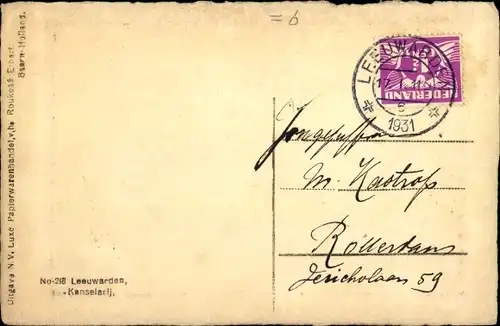 = 6
Uitgave N.V. Luxe Papierwarenhandel, v/h. Roukes & Erhart.
Baarn-Holland.
No-218 Leeuwarden,
Kanselarij.
LEEUWARDEN
1931
NEDERLAND
Jongejuffrou
M. Kastrop
Rotterdam
Jericholaan 59